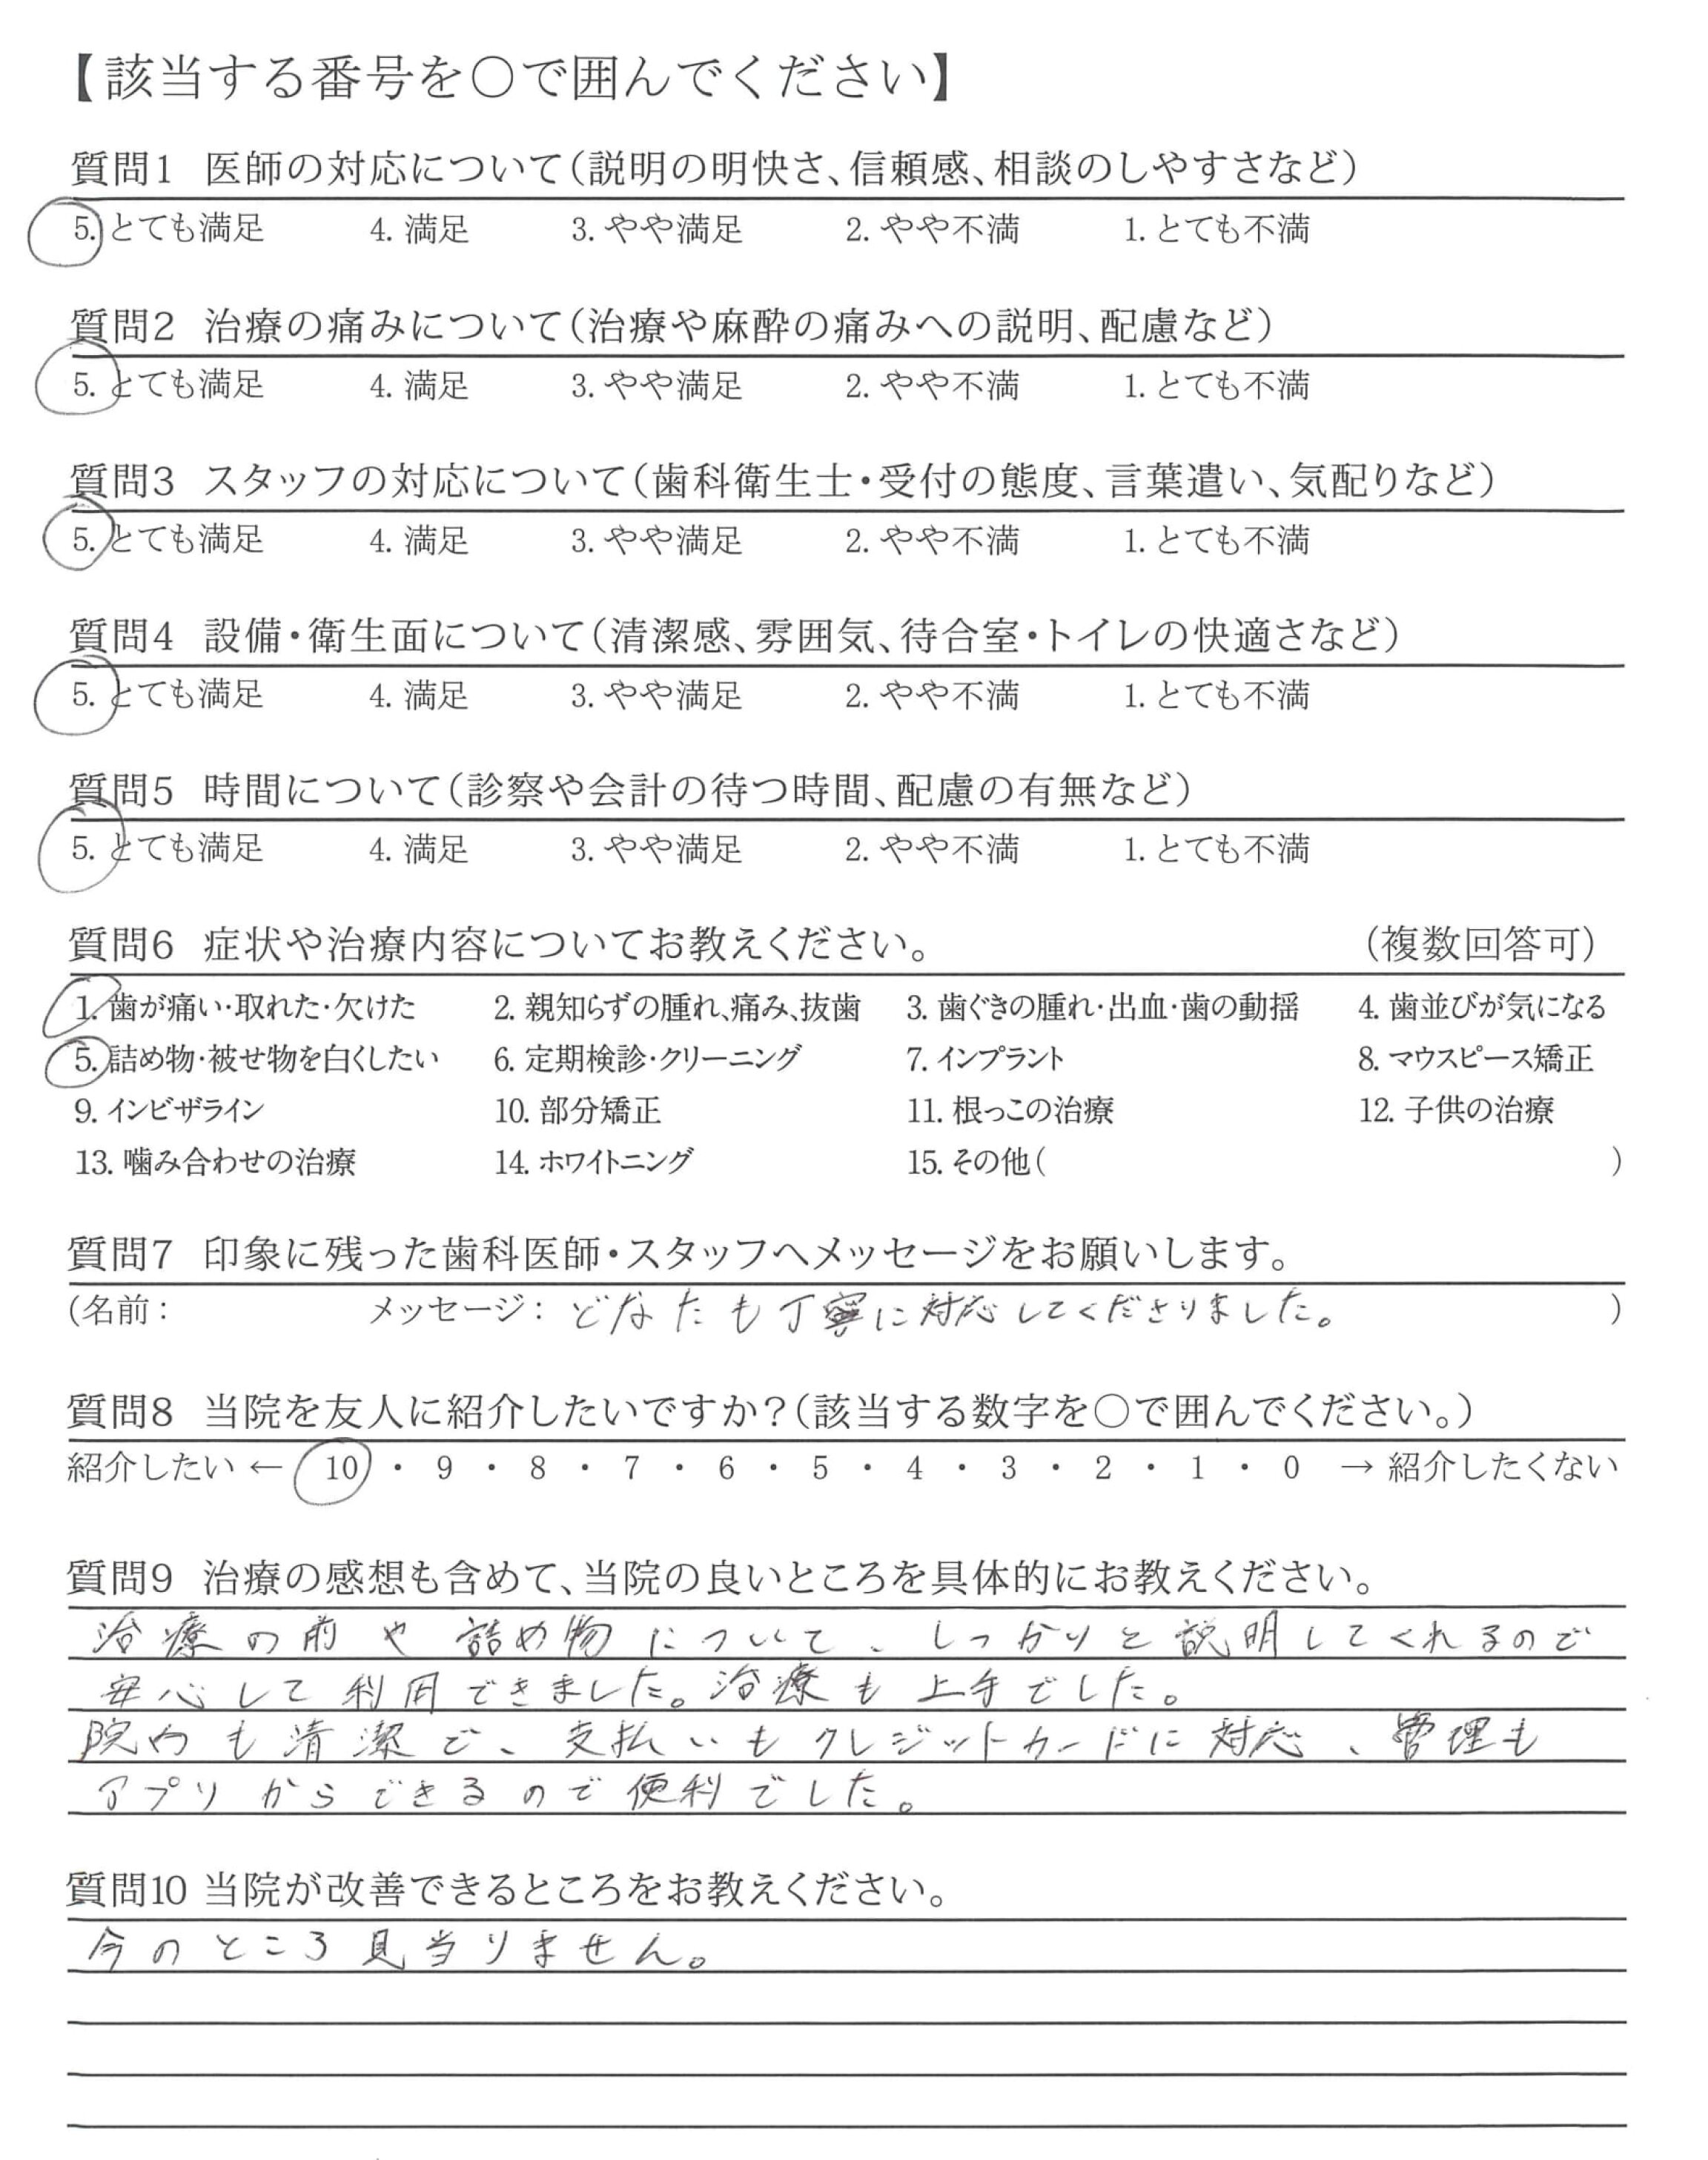 【該当する番号を〇で囲んでください】
質問1 医師の対応について(説明の明快さ、信頼感、相談のしやすさなど)
5. とても満足 4. 満足 3. やや満足 2. やや不満 1. とても不満
質問2 治療の痛みについて(治療や麻酔の痛みへの説明、配慮など)
5. とても満足 4. 満足 3. やや満足 2. やや不満 1. とても不満
質問3 スタッフの対応について(歯科衛生士・受付の態度、言葉遣い、気配りなど)
5. とても満足 4. 満足 3. やや満足 2. やや不満 1. とても不満
質問4 設備・衛生面について(清潔感、雰囲気、待合室・トイレの快適さなど)
5. とても満足 4. 満足 3. やや満足 2. やや不満 1. とても不満
質問5 時間について(診察や会計の待つ時間、配慮の有無など)
5. とても満足 4. 満足 3. やや満足 2. やや不満 1. とても不満
質問6 症状や治療内容についてお教えください。 (複数回答可)
1. 歯が痛い・取れた・欠けた 2. 親知らずの腫れ、痛み、抜歯 3. 歯ぐきの腫れ・出血・歯の動揺 4. 歯並びが気になる
5. 詰め物・被せ物を白くしたい 6. 定期検診・クリーニング 7. インプラント 8. マウスピース矯正
9. インビザライン 10. 部分矯正 11. 根っこの治療 12. 子供の治療
13. 噛み合わせの治療 14. ホワイトニング 15. その他( )
質問7 印象に残った歯科医師・スタッフへメッセージをお願いします。
(名前: メッセージ: どなたも丁寧に対応してくださりました。 )
質問8 当院を友人に紹介したいですか?(該当する数字を〇で囲んでください。)
紹介したい ← 10 ・ 9 ・ 8 ・ 7 ・ 6 ・ 5 ・ 4 ・ 3 ・ 2 ・ 1 ・ 0 → 紹介したくない
質問9 治療の感想も含めて、当院の良いところを具体的にお教えください。
治療の前や詰め物について、しっかりと説明してくれるので
安心して利用できました。治療も上手でした。
院内も清潔で、支払いもクレジットカードに対応、管理も
アプリからできるので便利でした。
質問10 当院が改善できるところをお教えください。
今のところ見当りません。